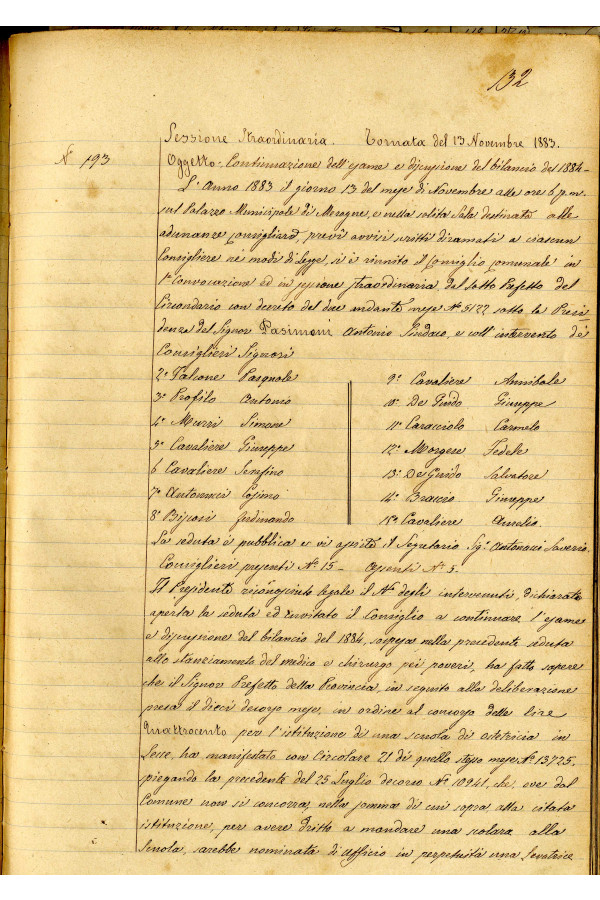 132
Sessione Straordinaria. Tornata del 13 Novembre 1883.
N. 193
Oggetto: Continuazione dell'esame e discussione del bilancio del 1884 -
L'Anno 1883 il giorno 13 del mese di Novembre alle ore 6 p.m.
sul Palazzo Municipale di Mesagne, e nella solita Sala destinata alle
adunanze consigliari, previi avvisi scritti diramati a ciascun
Consigliere nei modi di Legge, si è riunito il Consiglio Comunale in
1ª Convocazione ed in sessione straordinaria, dal Sotto Prefetto del
Circondario con decreto del due andante mese Nº 5122 sotto la Presi
denza del Signor Pasimeni Antonio Sindaco, e coll'intervento dè
Consiglieri Signori
2º Falcone Pasquale
3º Profilo Antonio
4º Murri Simone
5º Cavaliere Giuseppe
6 Cavaliere Serafino
7º Antonucci Cosimo
8º Ferdinando
9º Cavaliere Annibale
10º De Guido Giuseppe
11º Caracciolo Carmelo
12º Morgese Fedele
13º De Guido Salvatore
14º Braccio Giuseppe
15º Cavaliere Aurelio
La seduta è pubblica e vi assiste il Segretario Sigr. Antonucci Saverio.
Consiglieri presenti Nº 15 - Assenti Nº 5.
Il Presidente riconosciuto legale il Nº degli intervenuti, dichiarata
aperta la seduta ed invitato il Consiglio a continuare l'esame
e discussione del bilancio del 1884, sospesa nella precedente seduta
allo stanziamento del medico e chirurgo pei poveri, ha fatto sapere
che il Signor Prefetto della Provincia, in seguito alla deliberazione
presa il dieci decorso mese, in ordine al concorso delle lire
Quattrocento per l'istituzione di una scuola di ostetricia in
Lecce, ha manifestato con Circolare 21 dè quello stesso mese Nº 13725,
piegando la precedente del 25 Luglio decorso Nº 10941, che, ove dal
Comune non si concorra nella somma di cui sopra alla citata
istituzione, per avere dritto a mandare una scolara alla
Scuola, sarebbe nominata di Ufficio in perpetuità una Levatrice